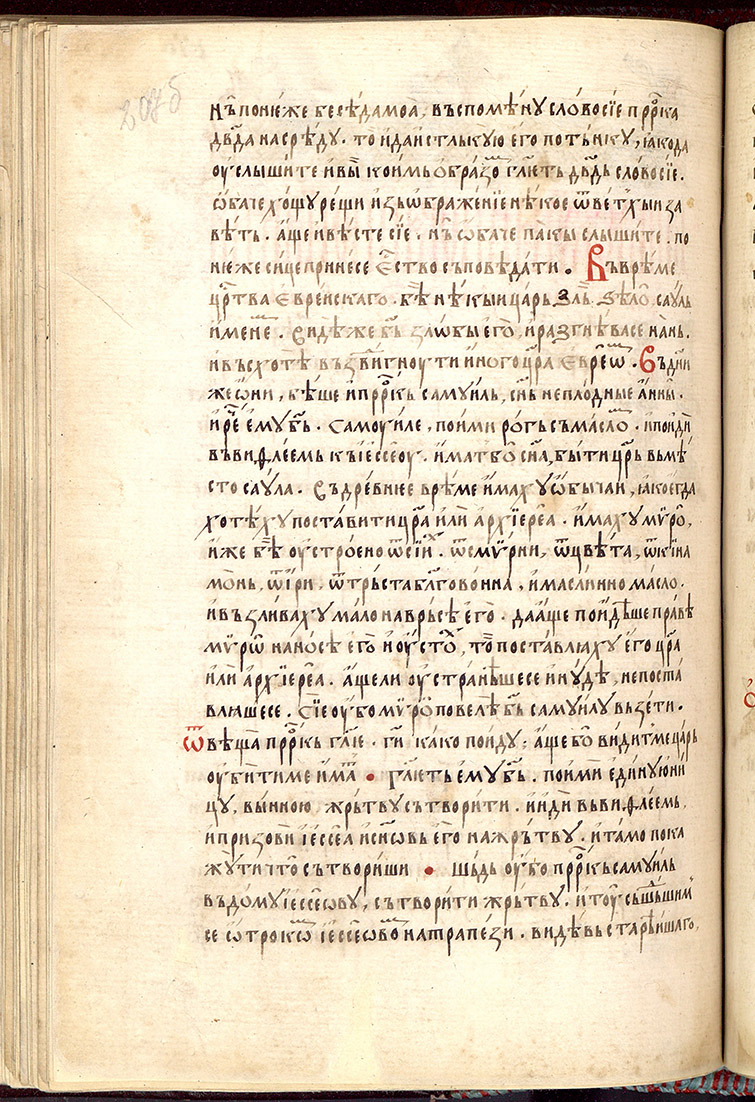 208б
нь҆ понѥ́же бесѣ́да моа̀, въспомѣ́ну сло́во сїе прⷪ҇рка
дв҃да на срѣ́дꙋ. то̀ и҆ да и҆стлькꙋю е҆го по тъ́нкꙋ, ꙗ҆ко да
оу҆слы́шите и҆ вы̏ кои́мь ѡ҆бра́зоⷨ гл҃ѥть дв҃дь сло́во сїе.
ѡ҆ба́че хо́щꙋ рещи и҆зьѡбраже́нїе нѣ́кое ѿ ве́тхый за
вѣ́ть. а҆́ще и҆ вѣ́сте сїе. нь҆ ѡ҆ба́че па́кы слы́шите. по
не́же си́це принесе є҆ⷭ҇ство съповѣ́дати. Въ врѣ́ме
црⷭ҇тва є҆вре́искаго. бѣ̏ нѣ́кыи ца́рь ѕль̏ ѕѣло̀, сау́ль
и҆́менеⷨ. Видѣ́ же бь҃ ѕло́бы е҆го̀, и҆ разгнѣ́ва се на нь.
и҆ въсхотѣ̀ въздви́гноути и҆но́го цр҃а є҆вре́ѡⷨ. Въ дни
же ѡ҆ни, бѣ́ше и҆ прⷪ҇ркь самуи́ль, сн҃ь непло́дные а҆́нны.
и҆ ре҃ е҆мꙋ бь҃. Самоуи́ле, пои́ми ро́гь съ ма́слоⷨ. и҆ пои́ди
въ виѳлее́мь къ і҆ессе́оу. и҆́мать бо̀ сн҃а, бы́ти цр҃ь вьмѣ́
сто саула. Въ дре́внѥе врѣ́ме и҆́махꙋ ѡ҆бы́чаи, ꙗ҆ко егда
хотѣ́хꙋ поста́вити цр҃а и҆лѝ а҆рхїере́а. и҆́махꙋ мѵ́ро,
и҆́же бѣ̏ оу҆стро́ено ѿ сїиⷯ. ѿ смѵ́рни, ѿ цвѣ́та, ѿ кїна
мо́нь, ѿ і҆́ри, ѿ тръста бл҃гово́нна, и҆ масли́нно ма́сло.
и҆ възлива́хꙋ ма́ло на врьсѣ̀ е҆го̀. да а҆́ще пои́дѣше пра́вѣ
мѵ́рѡ на но́сѣ е҆го̀ и҆ оу҆стоⷯ, то̏ поставлꙗ́хꙋ е҆го цр҃а
и҆лѝ а҆рхїере́а. а҆́ще ли оу҆страньше се и҆нꙋдѣ̀, не поста
влꙗше се. Сїе оу҆́бо мѵ́ро повелѣ̀ бь҃ самуи́лꙋ вьзе́ти.
Ѿвѣща̀ прⷪ҇ркь гл҃ѥ. гⷭ҇и ка́ко пои́дꙋ; а҆́ще бо̀ ви́дить ме ца́рь
оу҆би́ти ме и҆́маⷮ. Гл҃ѥть е҆мꙋ бь҃. пои́ми еди́нꙋ ю҆ни
цꙋ, вы́нною. жрьтвꙋ сътвори́ти. и҆ и҆дѝ въ виѳлее́мь.
и҆ призовѝ і҆ессе́а и҆ сн҃овь е҆го̀ на жрьтвꙋ. и҆ та́мо пока
жꙋ тѝ что̀ сътвори́ши. Шь́дь оу҆́бо прⷪ҇ркь самуи́ль
въ до́мꙋ і҆ессе́ѡвꙋ, сътвори́ти жрь́твꙋ. и҆ тоу̀ съше́дшим
се ѡ҆троко́ѡⷨ і҆ессе́ѡвоⷨ на трапе́зи. видѣ́вь старѣ́ишаго,